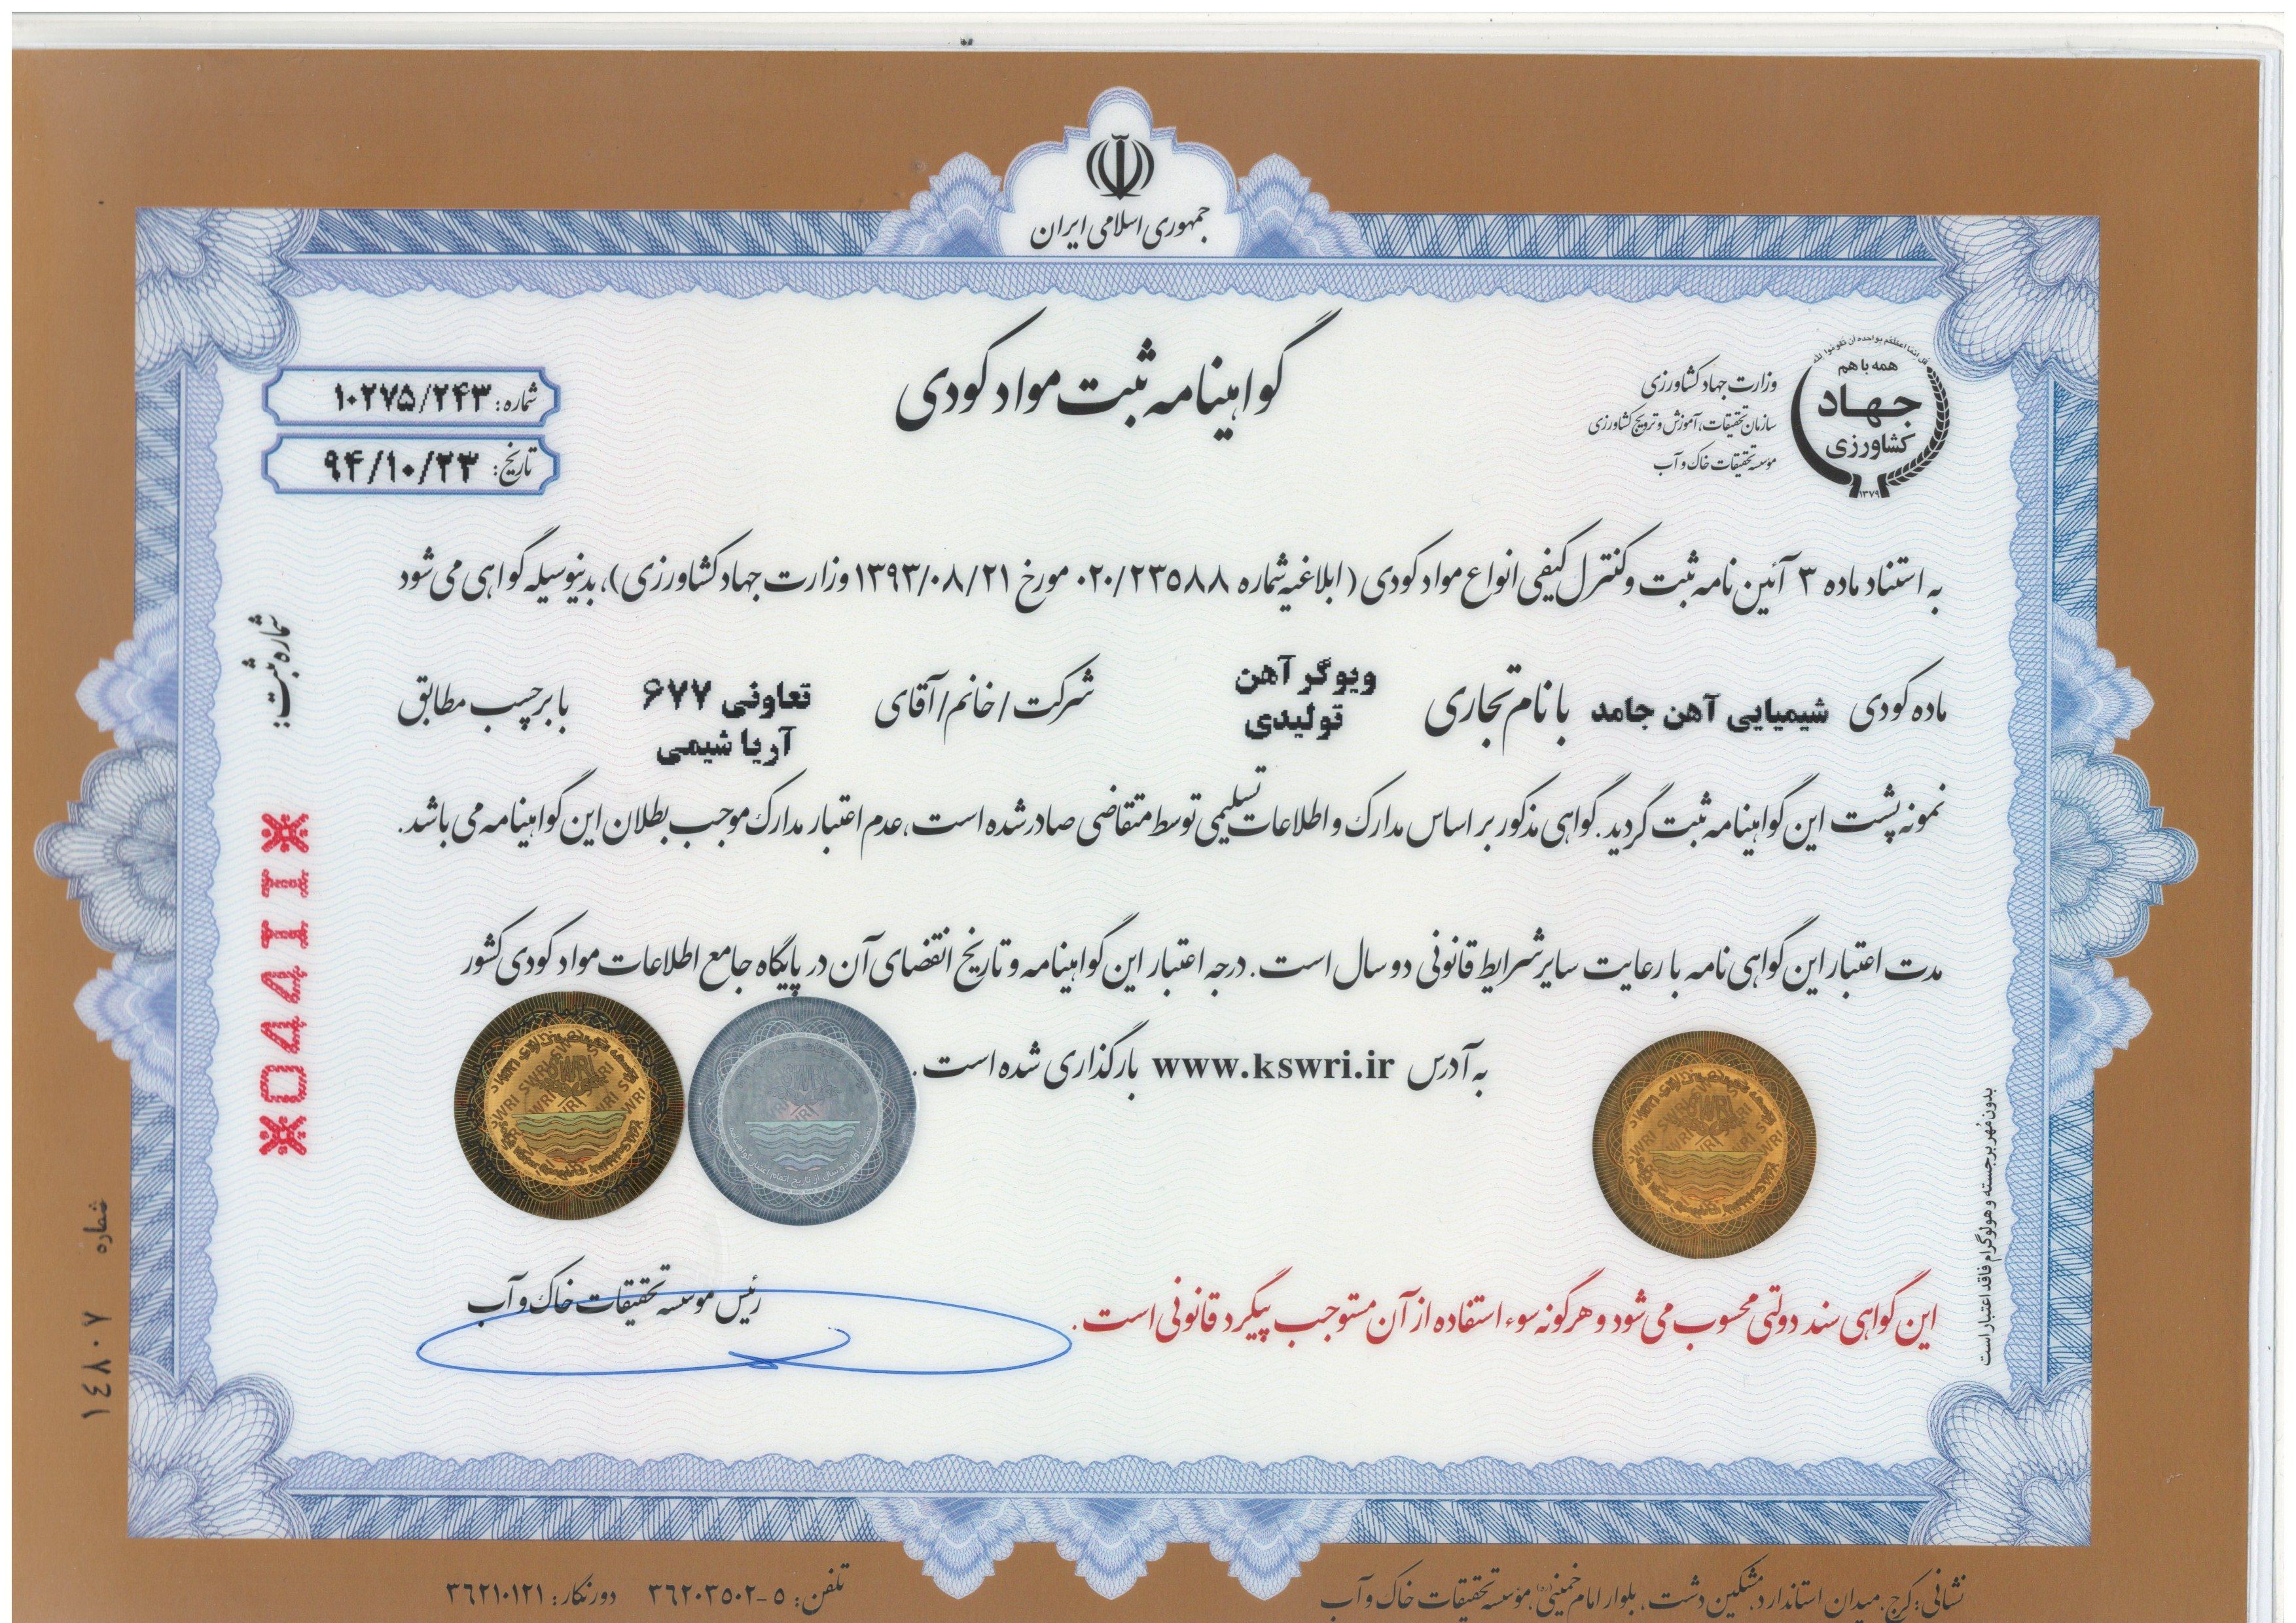 جمهوری اسلامی ایران
گواهینامه ثبت مواد کودی
همه با هم
جهاد
کشاورزی
۱۳۷۹
وزارت جهاد کشاورزی
سازمان تحقیقات، آموزش و ترویج کشاورزی
موسسه تحقیقات خاک و آب
شماره: ۱۰۲۷۵/۲۴۳
تاریخ: ۹۴/۱۰/۲۳
به استناد ماده ۳ آئین نامه ثبت و کنترل کیفی انواع مواد کودی (ابلاغیه شماره ۰۲۰/۲۳۵۸۸ مورخ ۱۳۹۳/۰۸/۲۱ وزارت جهاد کشاورزی)، بدینوسیله گواهی می شود
ماده کودی شیمیایی آهن جامد با نام تجاری ویوگر آهن تولیدی شرکت / خانم / آقای تعاونی ۶۷۷ آریا شیمی با برچسب مطابق
نمونه پشت این گواهینامه ثبت گردید. گواهی مذکور بر اساس مدارک و اطلاعات تسلیمی توسط متقاضی صادر شده است، عدم اعتبار مدارک موجب بطلان این گواهینامه می باشد.
مدت اعتبار این گواهی نامه با رعایت سایر شرایط قانونی دو سال است. درجه اعتبار این گواهینامه و تاریخ انقضای آن در پایگاه جامع اطلاعات مواد کودی کشور
به آدرس www.kswri.ir بارگذاری شده است.
رئیس موسسه تحقیقات خاک و آب
این گواهی سند دولتی محسوب می شود و هرگونه سوء استفاده از آن مستوجب پیگرد قانونی است.
بدون مُهر برجسته و هولوگرام فاقد اعتبار است
شماره ثبت:
شماره ۱۴۸۰۷
نشانی: کرج، میدان استاندارد، مشکین دشت، بلوار امام خمینی(ره)، مؤسسه تحقیقات خاک و آب
تلفن: ۵-۳۶۲۰۳۵۰۲ دورنگار: ۳۶۲۱۰۱۲۱